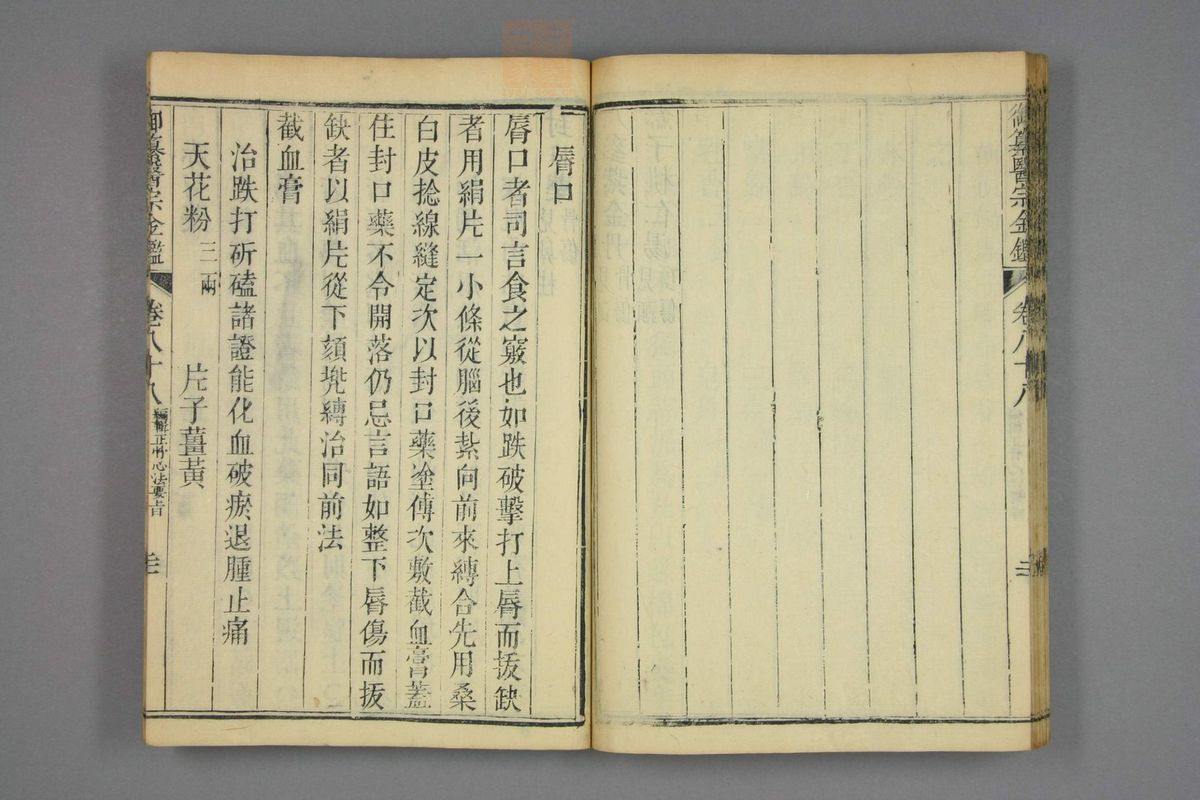 御纂醫宗金鑑 卷八十八
脣口
脣口者司言食之竅也如跌破擊打上脣而拔缺
者用絹片一小條從腦後紮向前來縛合先用桑
白皮捻線縫定次以封口藥塗傅次敷截血膏蓋
住封口藥不令開落仍忌言語如整下脣傷而拔
缺者以絹片從下頦兠縛治同前法
截血膏
治跌打斫磕諸證能化血破瘀退腫止痛
天花粉三兩 片子薑黃
御纂醫宗金鑑 卷八十八 編輯正骨心法要旨